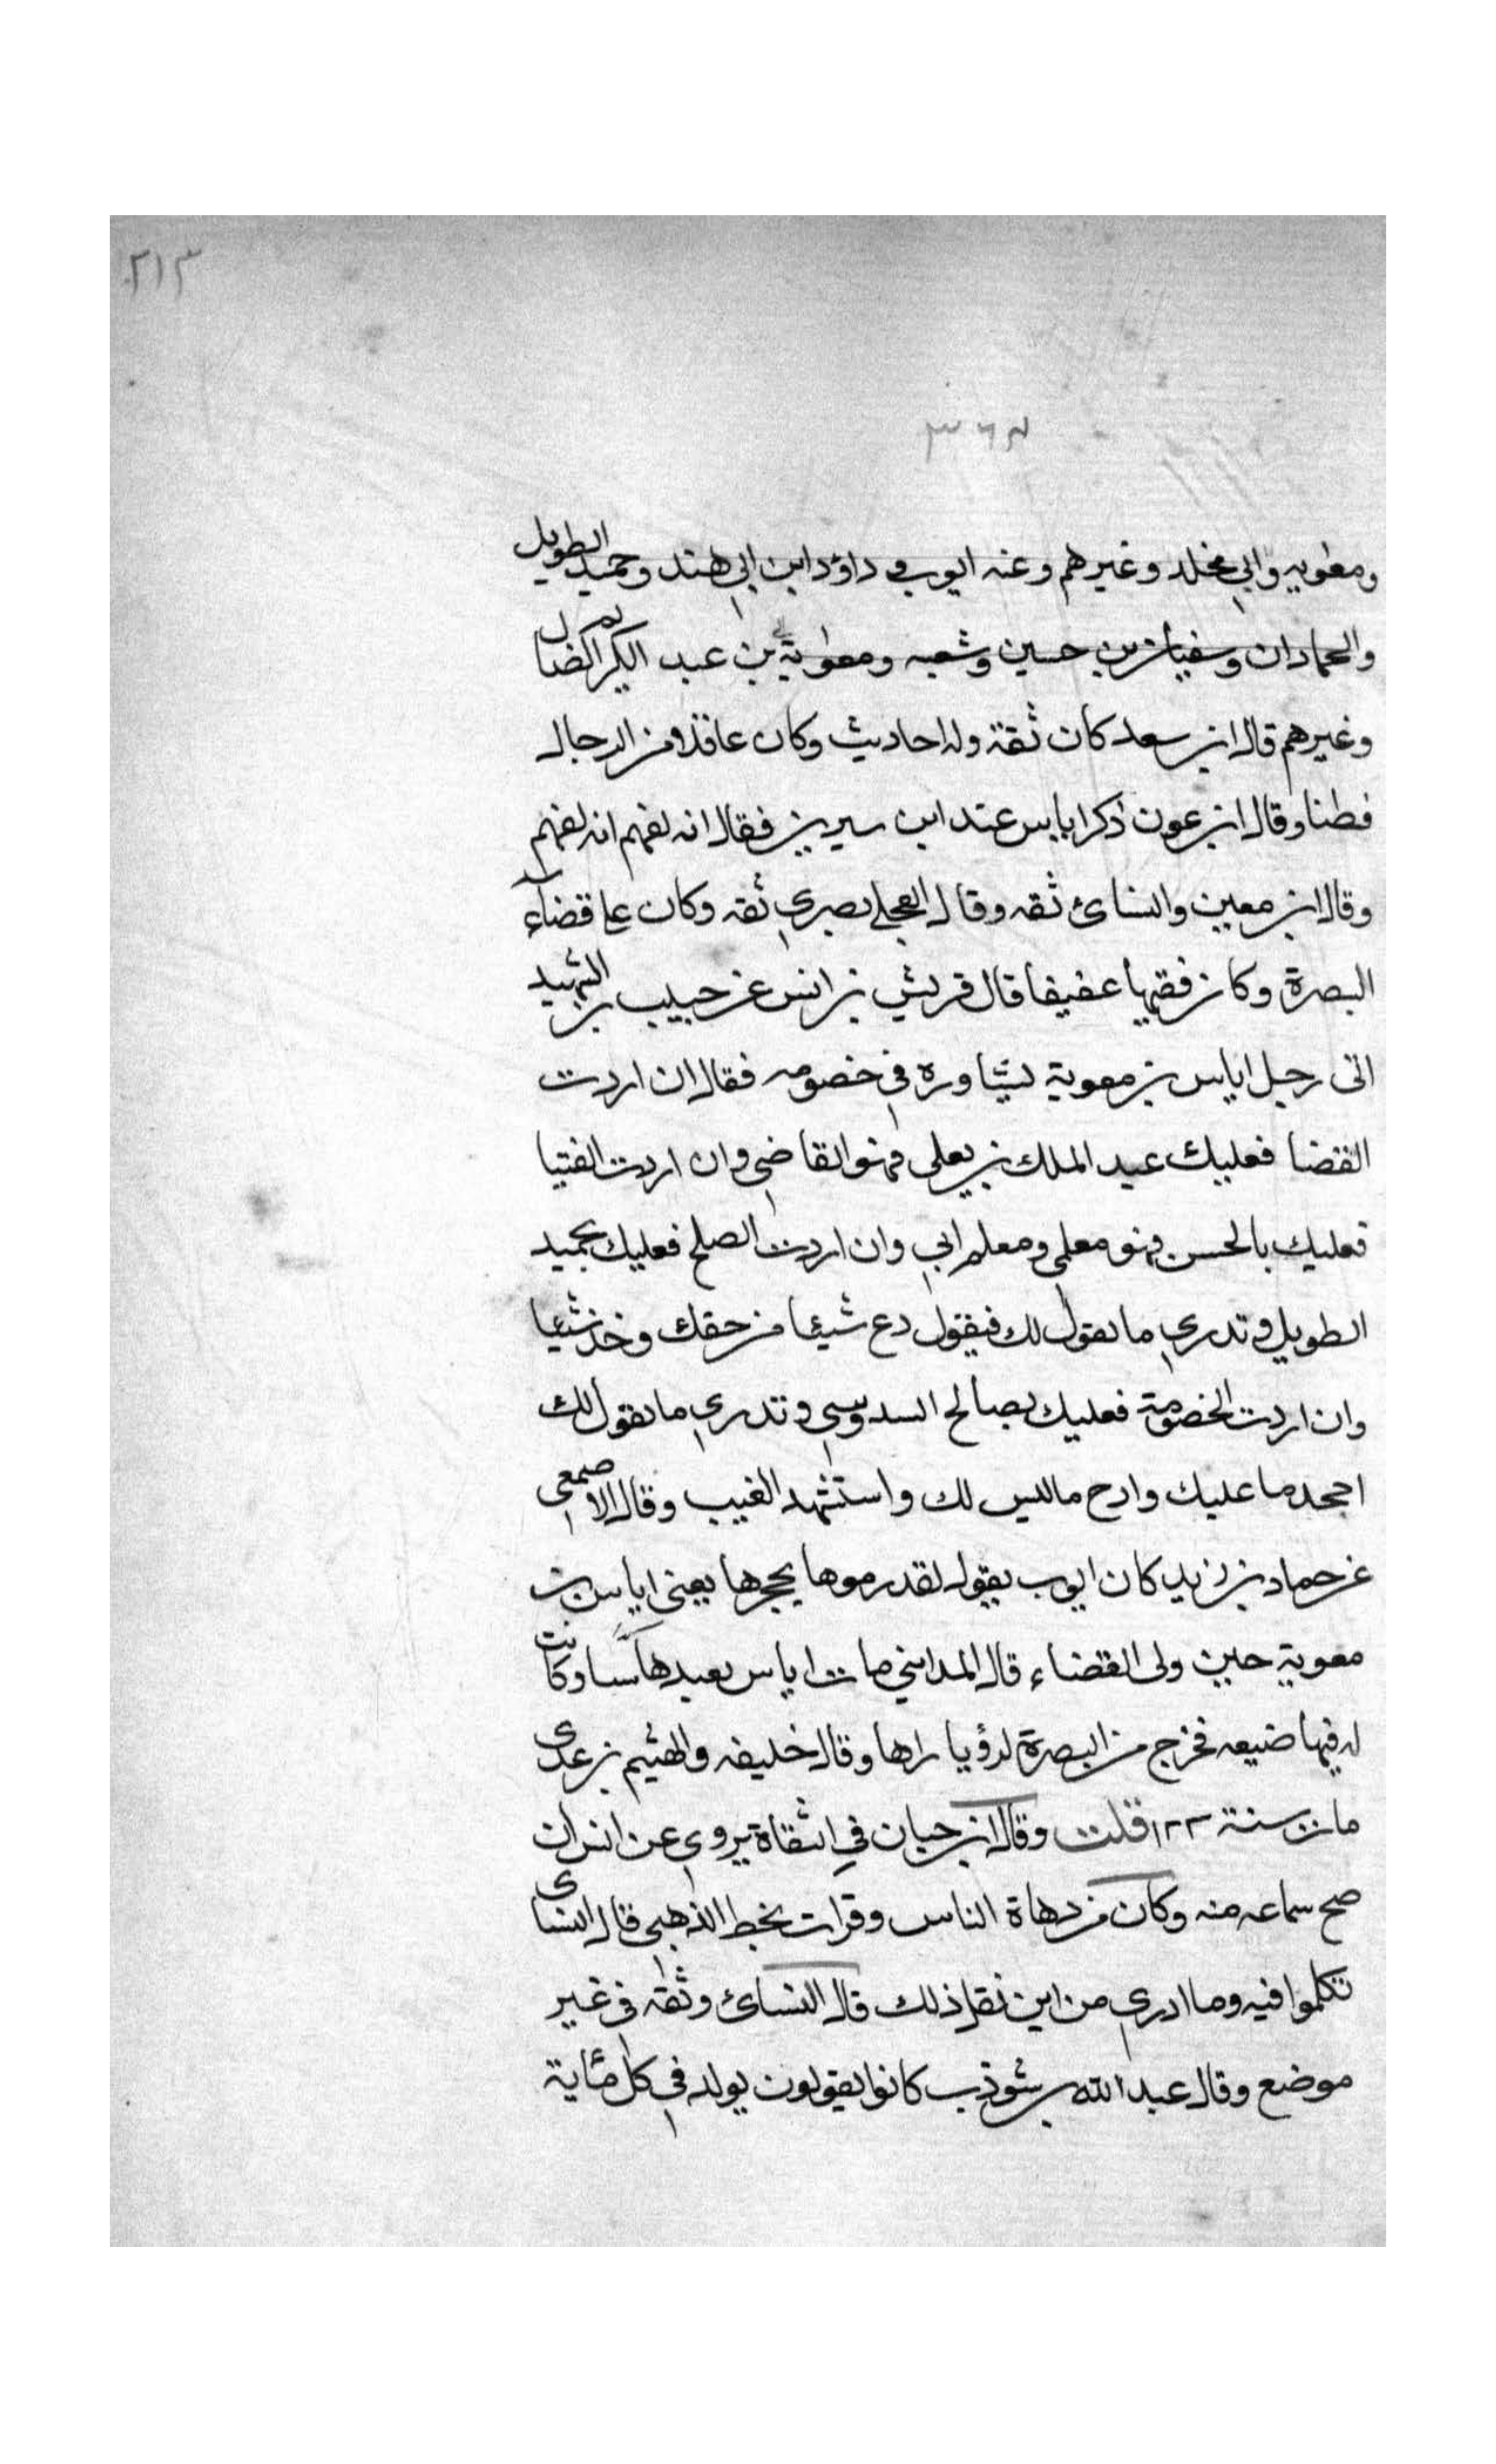 ٢١٣
ومعوية وابي مخلد وغيرهم وعنه ايوب و داؤد ابن ابي هند وحميد الطويل
والحمادان وسفيان بن حسين وشعبه ومعوية بن عبد الكريم الضال
وغيرهم قال ابن سعد كان ثقة وله احاديث وكان عاقلا من الرجال
فطنا وقال ابن عون ذكر اياس عند ابن سيرين فقال انه لفهم انه لفهم
وقال ابن معين والنسائ ثقه وقال العجلي بصري ثقه وكان على قضآء
البصرة وكان فقيها عفيفا قال قريش بن انس عن حبيب بن الشهيد
اتى رجل اياس بن معوية يشاوره في خصومه فقال ان اردت
القضا فعليك عبد الملك بن يعلى فهو القاضي وان اردت الفتيا
فعليك بالحسن فهو معلمي ومعلم ابي وان اردت الصلح فعليك بحميد
الطويل و تدري ما يقول لك فيقول دع شيئا من حقك وخذ شيئا
وان اردت الخصومة فعليك بصالح السدوسي و تدري ما يقول لك
اجحد ما عليك وادع ما ليس لك واستشهد الغيب وقال الاصمعي
عن حماد بن زيد كان ايوب يقول لقد رموها بحجرها يعني اياس بن
معوية حين ولى القضاء قال المدايني مات اياس بعبدسا وكانت
له فيها ضيعه فخرج من البصرة لرؤيا راها وقال خليفه والهيثم بن عدى
مات سنة ١٢٢ قلت وقال ابن حبان في الثقاة يروي عن انس ان
صح سماعه منه وكان من دهاة الناس وقرات بخط الذهبي قال النسائ
تكلموا فيه وما ادري من اين نقل ذلك قال النسائ وثقه في غير
موضع وقال عبد الله بن شوذب كانوا يقولون يولد في كل مئاية